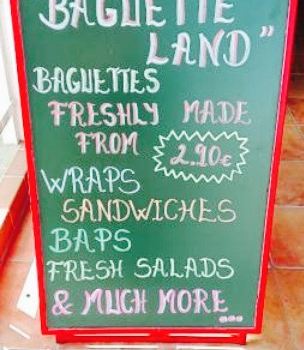 BAGUETTE
LAND"
BAGUETTES
FRESHLY MADE
FROM 2.90€
WRAPS
SANDWICHES
BAPS
FRESH SALADS
& MUCH MORE...